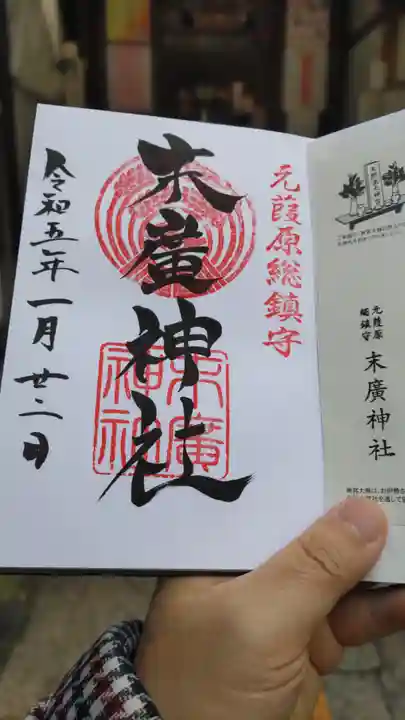 元葭原総鎮守
末廣神社
末廣神社
令和五年一月廿二日
元葭原
総鎮守
末廣神社